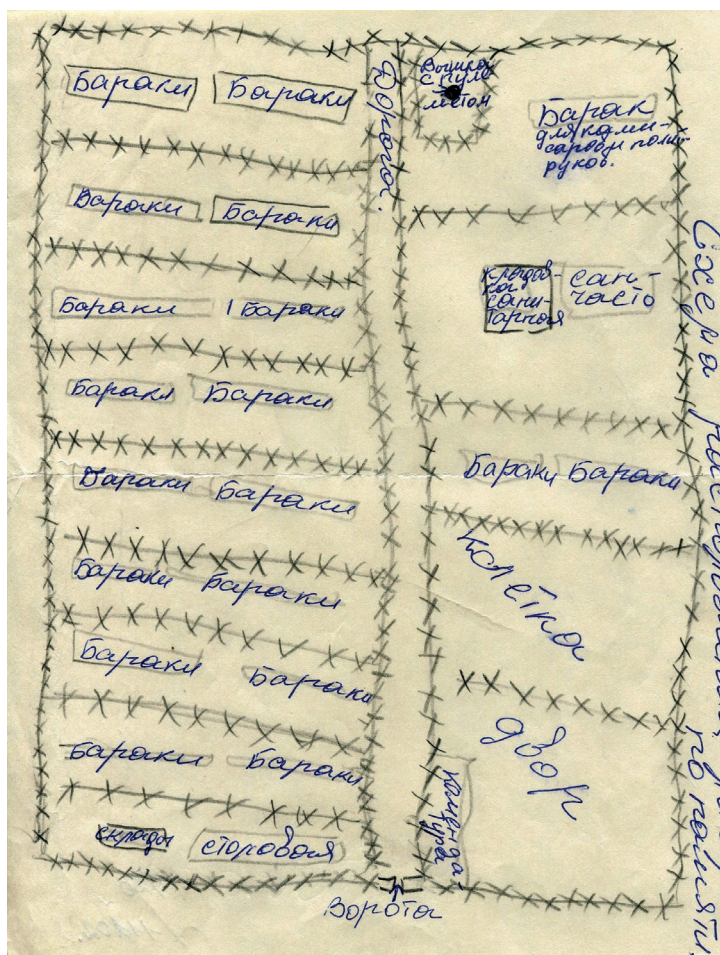 Бараки Бараки
Бараки Бараки
Бараки Бараки
Бараки Бараки
Бараки Бараки
Бараки Бараки
Бараки Бараки
Бараки Бараки
склады столовая
Дорога.
Вышка
с пуле-
мётом
Барак
для комис-
саров и полит-
руков.
Кладов-
кая
сани-
тарная
сан-
часто
Бараки Бараки
Клетка
двор
коменда-
тура
Ворота
Схема
по памяти.